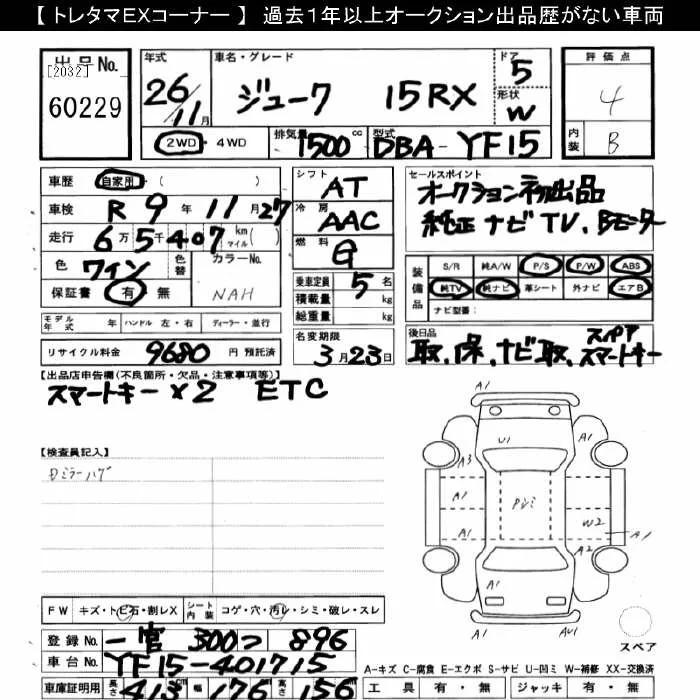 【 トレタマEXコーナー 】 過去１年以上オークション出品歴がない車両
出品No.
[2032]
60229
年式 26/11月
車名・グレード ジューク 15RX
ドア 5
形状 W
評価点 4
内装 B
2WD・4WD
排気量 1500 cc
型式 DBA-YF15
車歴 自家用 ( )
車検 R 9年 11月 27
走行 6万5千407 km マイル ( )
色 ワイン 色替
カラーNo. NAH
保証書 有 無
シフト AT
冷房 AAC
燃料 G
乗車定員 5 名
積載量 kg
総重量 kg
セールスポイント
オークション初出品
純正ナビTV、Bモーター
装備品
S/R 純A/W P/S P/W ABS
純TV 純ナビ 革シート 外ナビ エアB
ナビ型番:
モデル年式 年 ハンドル 左・右 ディーラー・並行
リサイクル料金 9680 円 預託済
名変期限 3月23日
後日品 取、保、ナビ取、スペアスマートキー
【出品店申告欄(不良箇所・欠品・注意事項等)】
スマートキー×2 ETC
【検査員記入】
ミラーハゲ
A1
U1
A3
A1
A1
Pシミ
W2
A1
A2
A1
A1
AU1
スペア
FW キズ・トビ石・割レX
シート内装 コゲ・穴・汚レ・シミ・破レ・スレ
登録No. 一宮 300つ 896
車台No. YF15-401715
車庫証明用 長さ 413 幅 176 高さ 156
A-キズ C-腐食 E-エクボ S-サビ U-凹ミ W-補修 XX-交換済
工具 有・無 ジャッキ 有・無